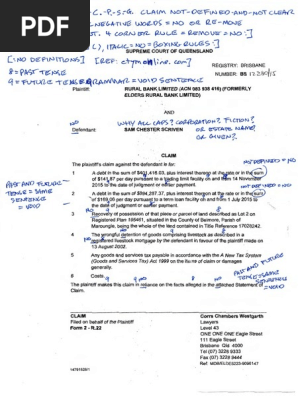 PDF
C.-P.-S.-G. CLAIM NOT-DEFINED-AND-NOT CLEAR
NEGATIVE WORDS = NO OR RE-MOVE
4 CORNER RULE = REMOVE = NO :]
ITALIC = NO = BOXING RULES :]
SUPREME COURT OF QUEENSLAND
[:NO DEFINITIONS:]
REGISTRY: BRISBANE
8 = PAST TENSE
NUMBER: BS
9 = FUTURE TENSE GRAMMAR = VOID SENTENCE
Plaintiff
RURAL BANK LIMITED (ACN 083 938 416) (FORMERLY
ELDERS RURAL BANK LIMITED)
AND
NO
WHY ALL CAPS? CORPORATION? FICTION?
Defendant:
SAM CHESTER SCRIVEN
OR ESTATE NAME?
OR GIVEN?
CLAIM
The plaintiff's claim against the defendant is for:
NOT DEFINED = NO
1 A debt in the sum of $401,418.03, plus interest thereon at the rate or in the sum
of per day pursuant to a trading limit facility on and from 14 November
2015 to the date of judgment or earlier payment.
NOT DEFINED = NO
PAST AND FUTURE
TENSE = SAME
SENTENCE
= VOID
2 A debt in the sum of plus interest thereon at the rate or in the sum
of per day pursuant to a term loan facility on and from 1 July 2015 to
the date of judgment or earlier payment.
3 Recovery of possession of that piece or parcel of land described as Lot 2 on
Registered Plan situated in the County of Belmore, Parish of
Maroungle, being the whole of the land contained in Title Reference
4 The wrongful detention of goods comprising livestock as described in a
registered livestock mortgage by the defendant in favour of the plaintiff made on
13 August 2002.
5 Any goods and services tax payable in accordance with the A New Tax System
(Goods and Services Tax) Act 1999 on the items of claim or damages
generally.
PAST AND FUTURE
TENSE = SAME
SENTENCE
= VOID
6 Costs.
The plaintiff makes this claim in reliance on the facts alleged in the attached Statement of
Claim.
CLAIM
Filed on behalf of the Plaintiff
Form 2 - R.22
Corrs Chambers Westgarth
Lawyers
Level 43
ONE ONE ONE Eagle Street
111 Eagle Street
Brisbane Qld 4000
Tel (07) 3228 9333
Fax (07) 3228 9444